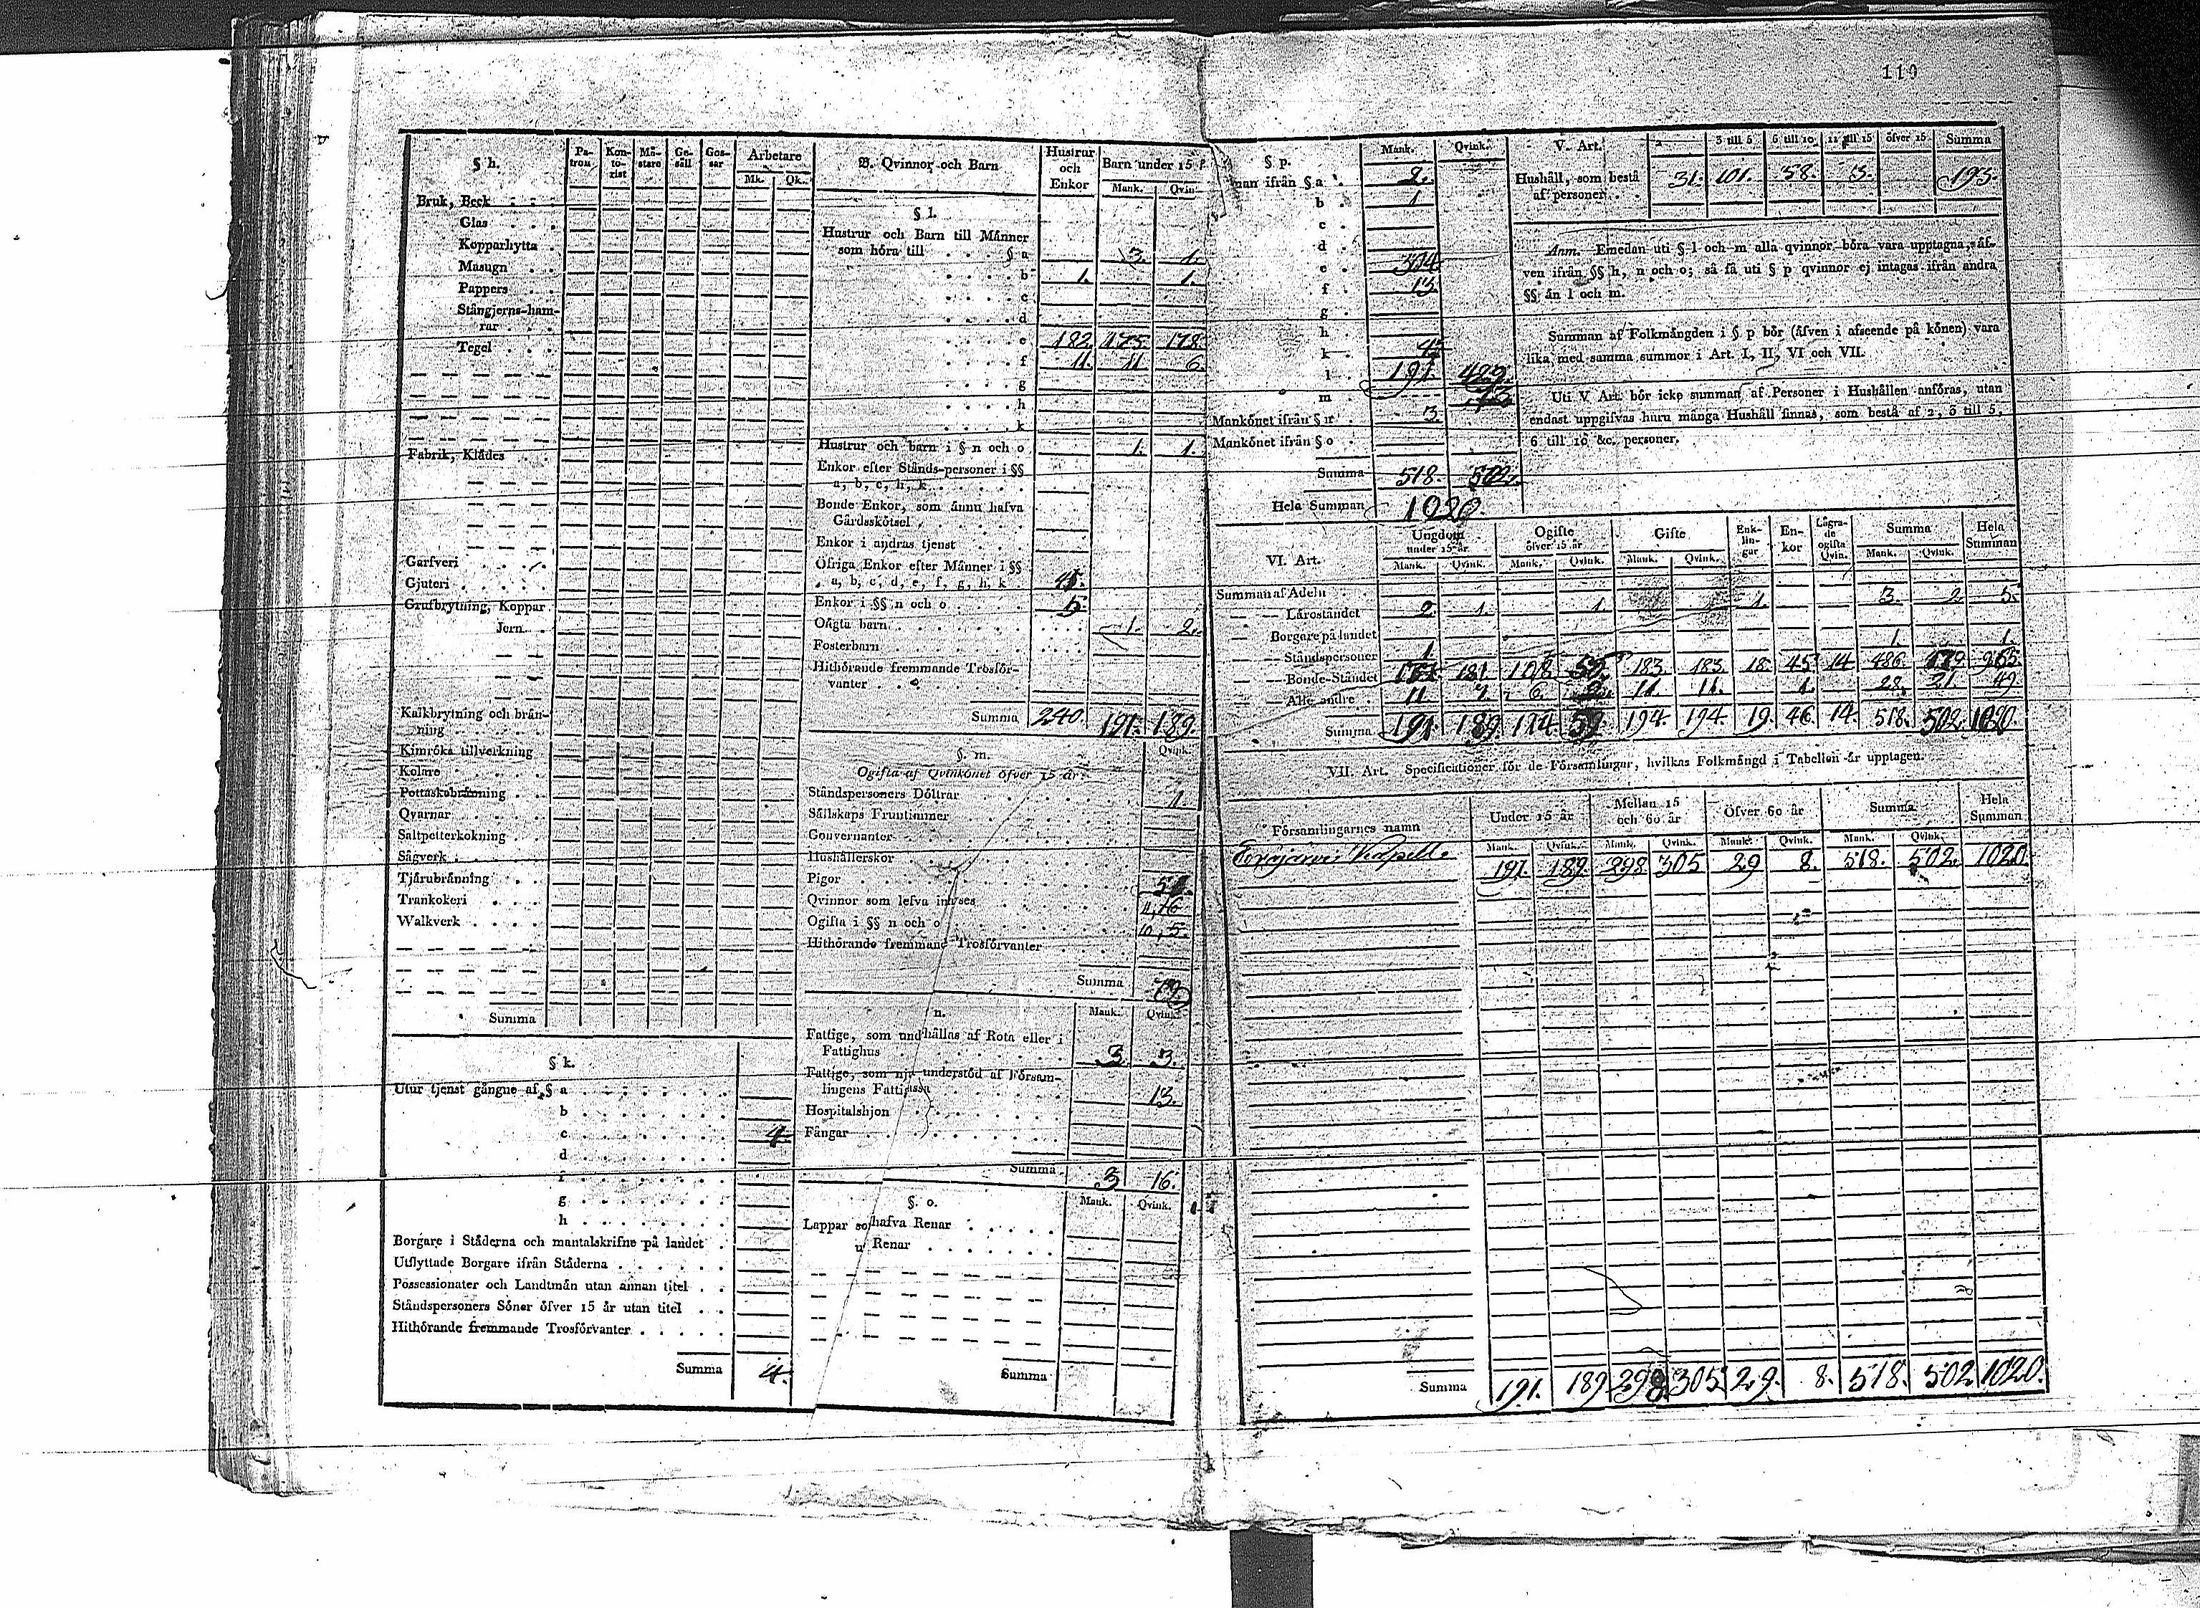 119
§ h.
Pa-tron
Kon-to-rist
Mä-stare
Ge-säll
Gos-sar
Arbetare
Mk. Qk.
Bruk, Beck
Glas
Kopparhytta
Masugn
Pappers
Stångjerns-ham-
rar
Tegel
Fabrik, Klädes
Garfveri
Gjuteri
Grufbrytning, Koppar
Jern
Kalkbrytning och brän-
ning
Kimröks tillverkning
Kolare
Pottaskebränning
Qvarnar
Saltpetterkokning
Sågverk
Tjärubränning
Trankokeri
Walkverk
Summa
§ k.
Utur tjenst gångne af § a
b
c 4
d
f
g
h
Borgare i Städerna och mantalskrifne på landet
Utflyttade Borgare ifrån Städerna
Possessionater och Landtmän utan annan titel
Ståndspersoners Söner öfver 15 år utan titel
Hithörande fremmande Trosförvanter
Summa 4.
B. Qvinnor och Barn
Hustrur och Enkor
Barn under 15
Mank. Qvin.
§ l.
Hustrur och Barn till Männer
som höra till § a 3. 1.
b 1. 1.
c
d
e 182 175 178
f 11. 11 6.
g
h
k
Hustrur och barn i § n och o 1. 1.
Enkor efter Stånds-personer i §§
a, b, c, h, k
Bonde Enkor, som ännu hafva
Gårdsskötsel
Enkor i andras tjenst
Öfriga Enkor efter Männer i §§
a, b, c, d, e, f, g, h, k 41.
Enkor i §§ n och o 5
Oägta barn 1. 2.
Fosterbarn
Hithörande fremmande Trosför-
vanter
Summa 240. 191. 189.
§. m. Qvink.
Ogifta af Qvinkönet öfver 15 år
Ståndspersoners Döttrar 1
Sällskaps Fruntimmer
Gouvernanter
Hushållerskor
Pigor
Qvinnor som lefva inhyses
Ogifta i §§ n och o
Hithörande fremmand Trosförvanter
Summa
n. Mank. Qvink.
Fattige, som undhållas af Rota eller i
Fattighus 3. 3.
Fattige, som nju understöd af Försam-
lingens Fattigassa 13.
Hospitalshjon
Fångar
Summa 3 16.
§. o. Mank. Qvink.
Lappar so hafva Renar
u Renar
Summa
§ p. Mank. Qvink.
nan ifrån § a 2.
b 1
c
d
e 304
f 13
g
h
k 4
l 191. 429.
m 73
Mankönet ifrån § n 3.
Mankönet ifrån § o
Summa 518. 502.
Hela Summan 1020.
V. Art. 2 3 till 5 6 till 10 11 till 15 öfver 15 Summa
Hushåll, som bestå
af personer 31. 101. 58. 3. 193.
Anm. Emedan uti § l och m alla qvinnor böra vara upptagna, äf-
ven ifrån §§ h, n och o; så få uti § p qvinnor ej intagas ifrån andra
§§ än l och m.
Summan af Folkmängden i § p bör (äfven i afseende på könen) vara
lika med samma summor i Art. I, II, VI och VII.
Uti V Art. bör icke summan af Personer i Hushållen anföras, utan
endast uppgifvas huru många Hushåll finnas, som bestå af 2, 3 till 5,
6 till 10 &c. personer.
VI. Art.
Ungdom under 15 år
Ogifte öfver 15 år
Gifte
Enk-lin-gar
En-kor
Lägra-de ogifta Qvin.
Summa
Hela Summan
Mank. Qvink. Mank. Qvink. Mank. Qvink. Mank. Qvink.
Summan af Adeln
— — Läroståndet 2 1. 1 1. 3. 2 5.
— Borgare på landet
— — Ståndspersoner 1 1. 1.
— — Bonde-Ståndet 181. 108 183. 183. 18. 45 14 486. 965.
— — Alle andre 11 7. 6. 11 11. 1. 28. 21 49.
Summa 191. 189. 114 59. 194. 194. 19. 46. 14. 518. 502. 1020.
VII. Art. Specificationer för de Församlingar, hvilkas Folkmängd i Tabellen är upptagen.
Församlingarnes namn
Under 15 år
Mellan 15 och 60 år
Öfver 60 år
Summa
Hela Summan
Mank. Qvink. Mank. Qvink. Mank. Qvink. Mank. Qvink.
Kapell 191. 189. 298. 305 29 8. 518. 502. 1020
Summa 191. 189. 298. 305. 29. 8. 518. 502. 1020.